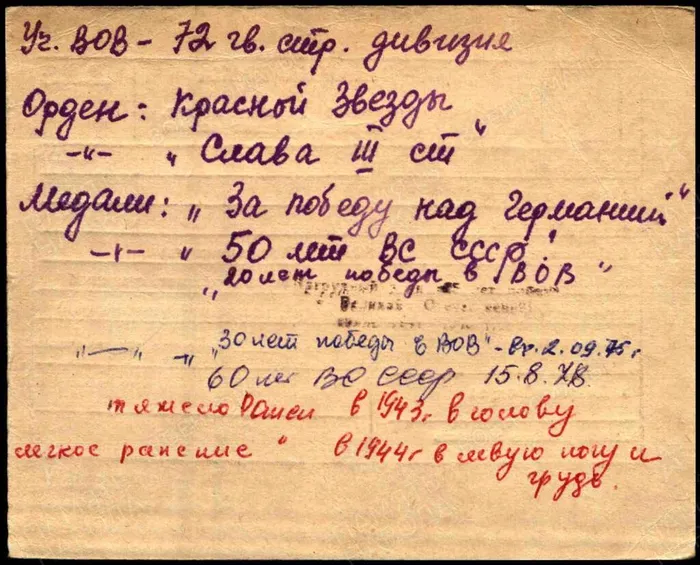 Уч. ВОВ – 72 гв. стр. дивизия
Орден: Красной Звезды
–"– „Слава III ст"
Медали: „За победу над Германий"
–"– „50 лет ВС СССР"
„20 лет победы в ВОВ"
Великой
„—" –„ „30 лет победы в ВОВ" – вр. 2.09.75 г
60 лет ВС СССР 15.8.78.
тяжело Ранен в 1943г в голову
легкое ранение " в 1944г в левую ногу и
грудь.